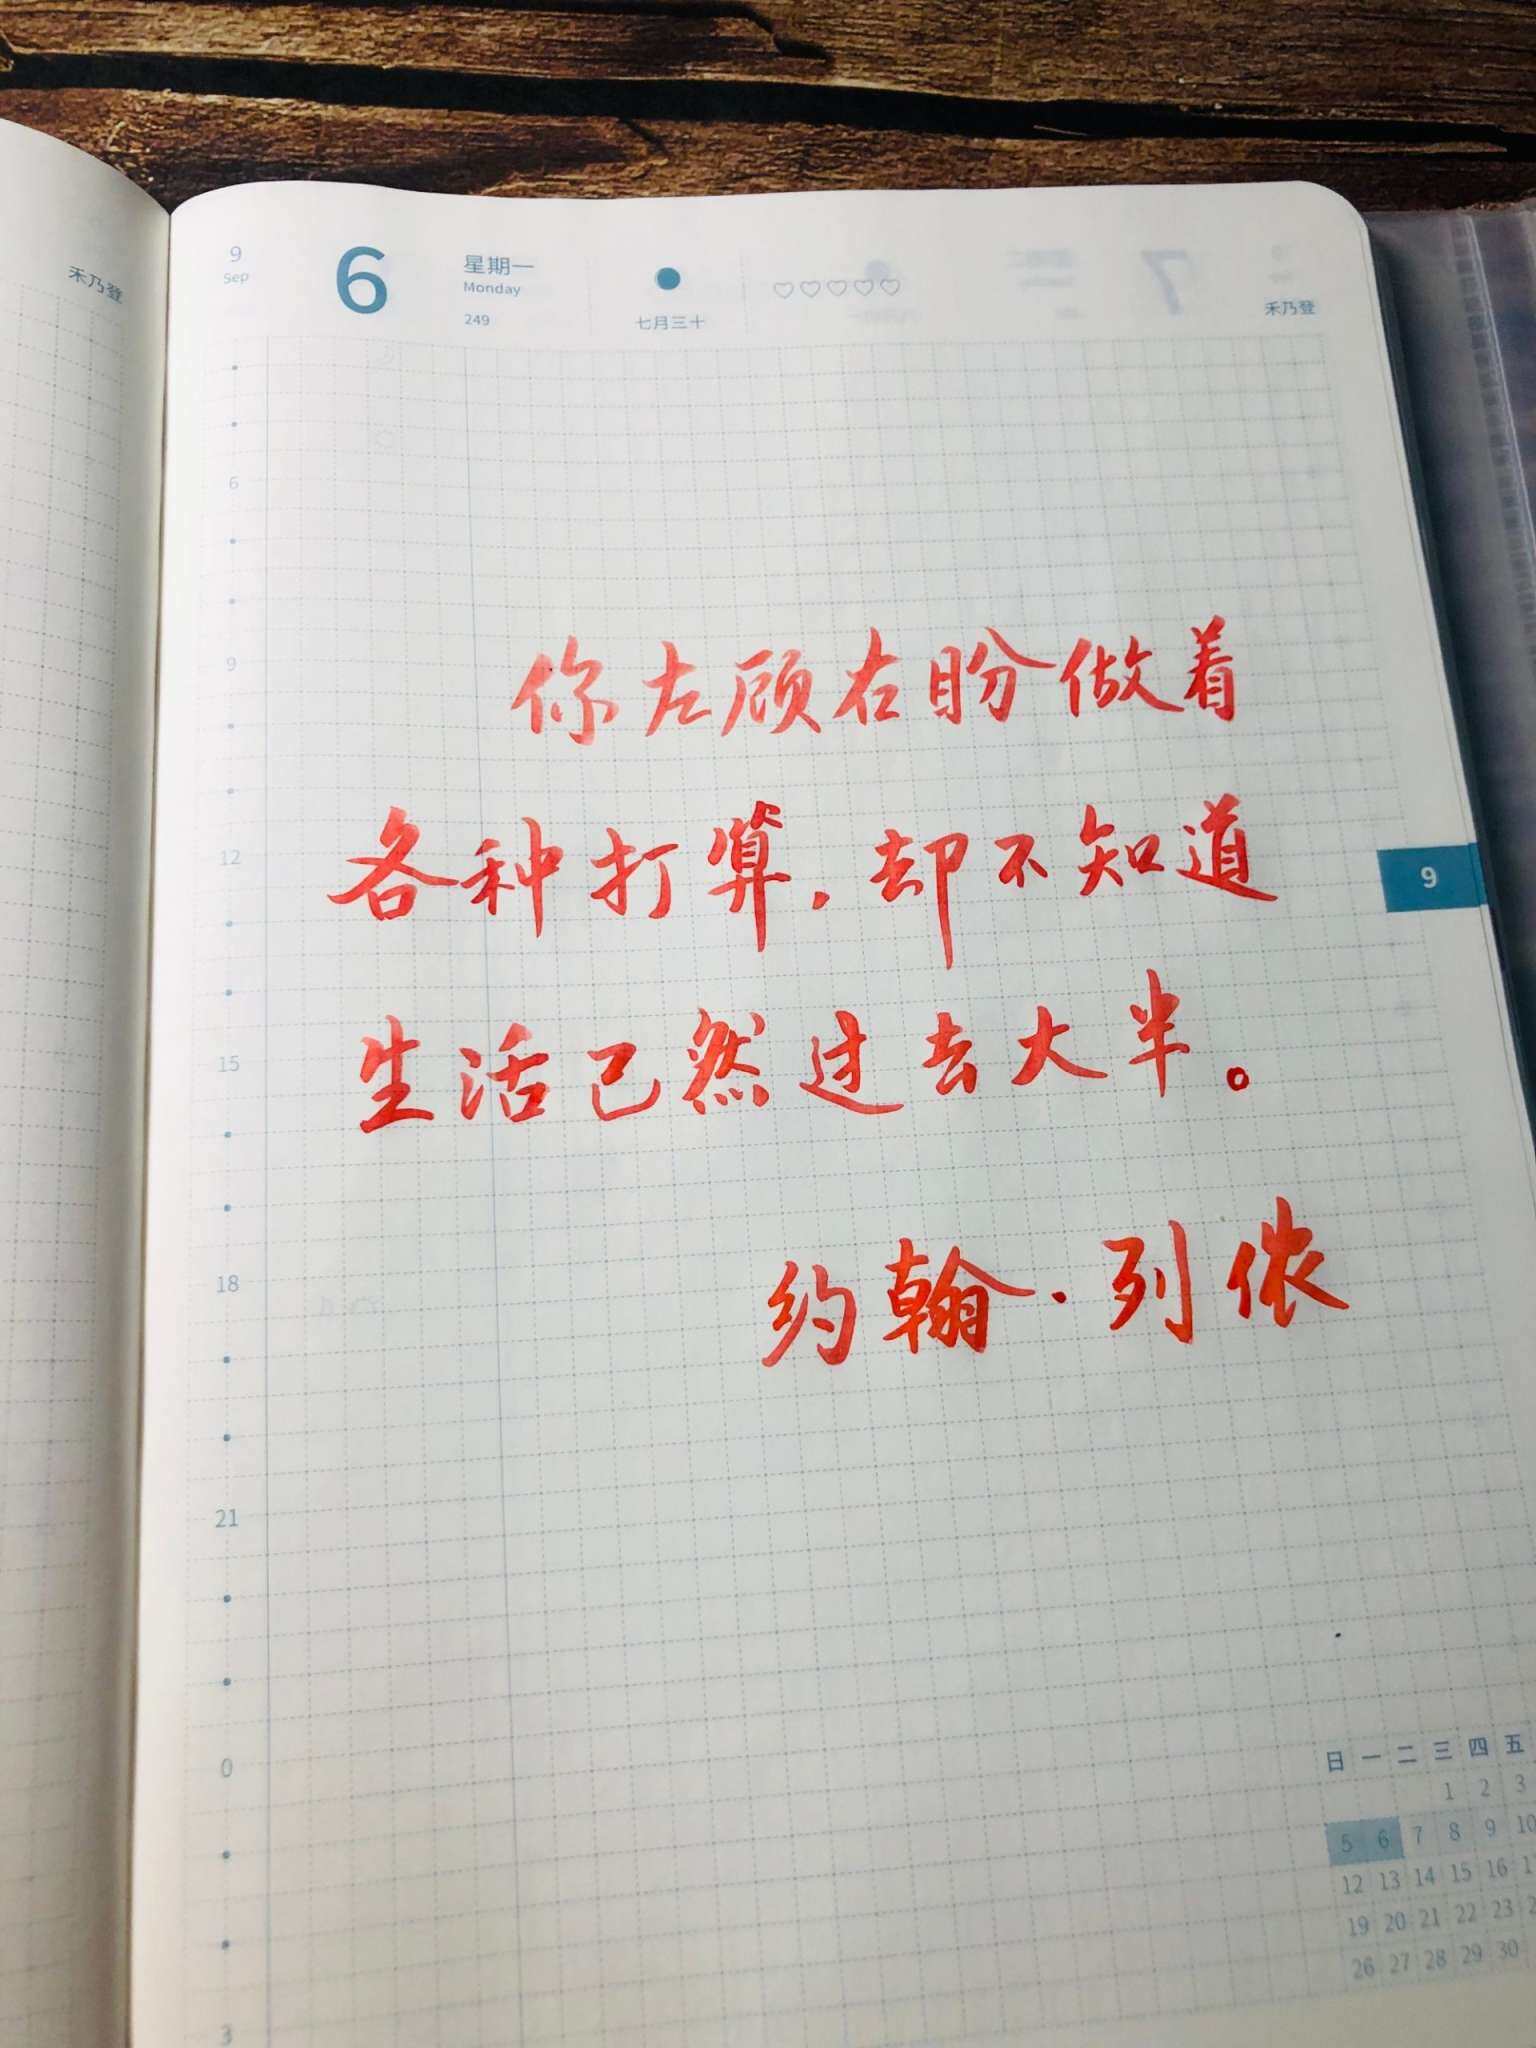 禾乃登
9
Sep
6
星期一
Monday
249
七月三十
禾乃登
6
9
12
15
18
21
0
3
你左顾右盼做着
各种打算，却不知道
生活已然过去大半。
约翰·列侬
9
日 一 二 三 四 五
1 2 3
5 6 7 8 9 10
12 13 14 15 16
19 20 21 22 23
26 27 28 29 30